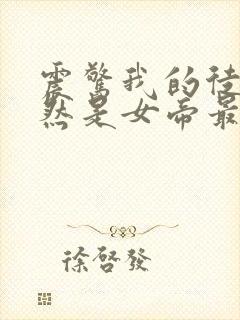 震驚我的徒
然是女帝最
徐啓發